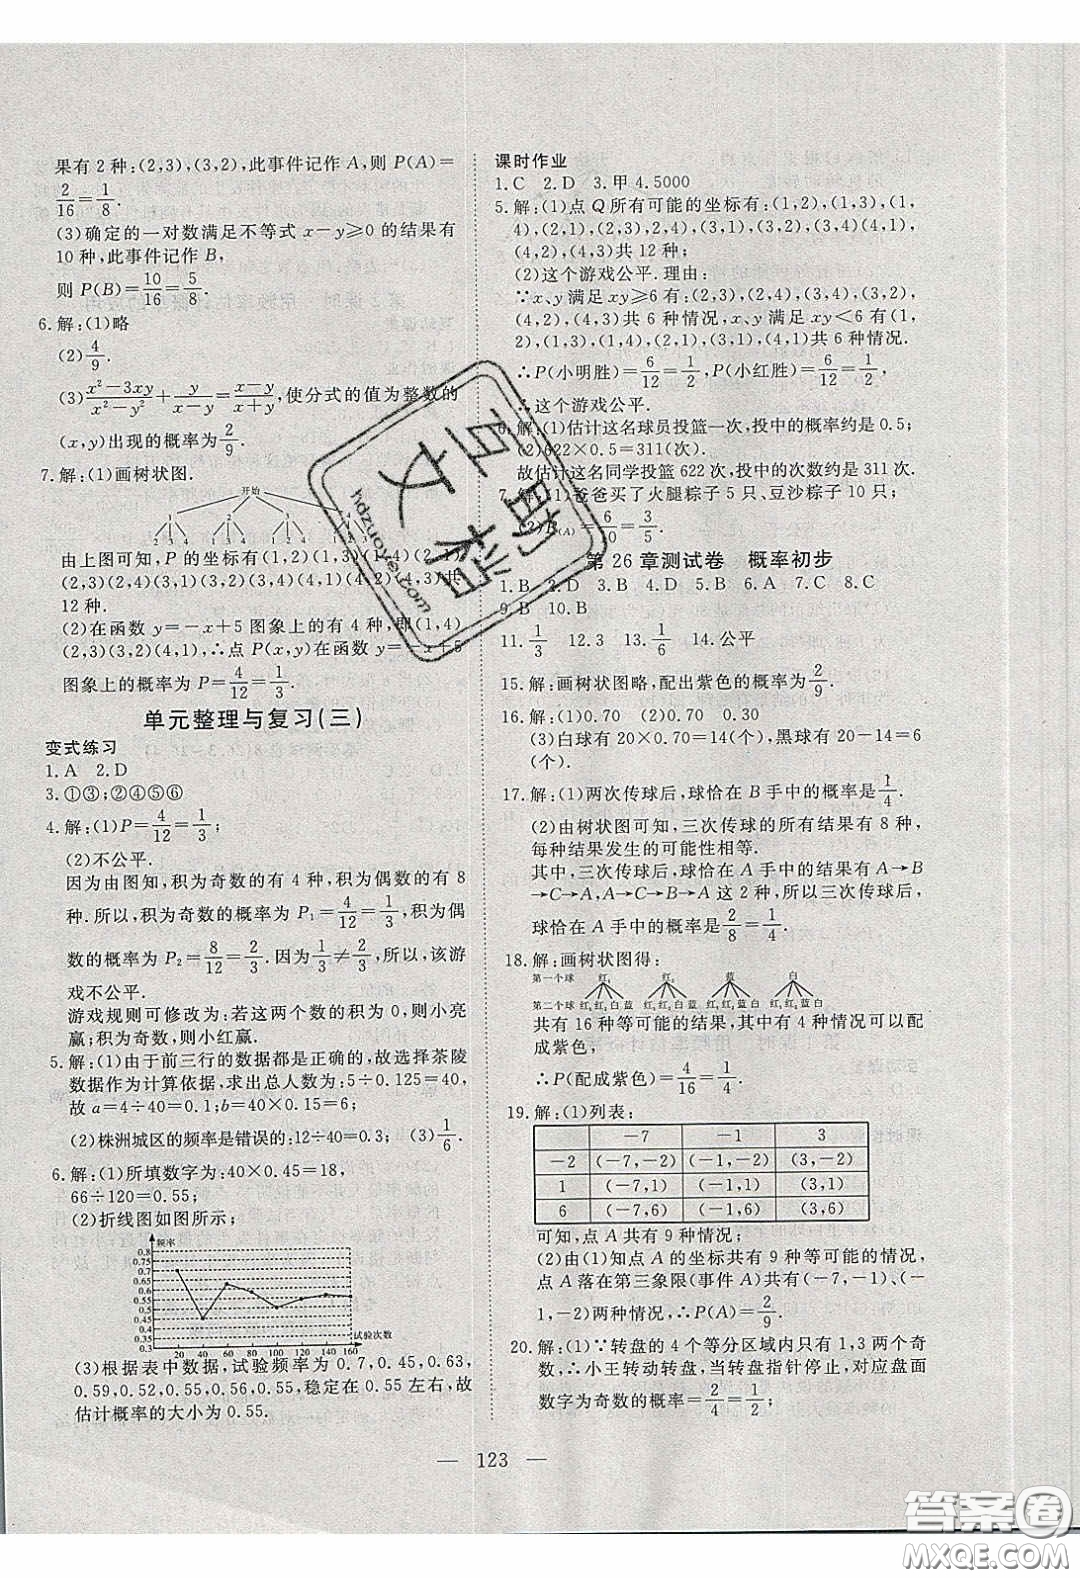 果有 2 种:(2,3),(3,2),此事件记作 A,则 P(A)=
2/16=1/8.
(3)确定的一对数满足不等式 x-y≥0 的结果有
10 种,此事件记作 B,
则 P(B)=10/16=5/8.
6.解:(1)略
(2)4/9.
(3)(x²-3xy)/(x²-y²)+y/(x-y)=(x-y)/(x+y),使分式的值为整数的
(x,y)出现的概率为2/9.
7.解:(1)画树状图.
开始
由上图可知,P 的坐标有(1,2)(1,3)(1,4)(2,1)
(2,3)(2,4)(3,1)(3,2)(3,4)(4,1)(4,2)(4,3)共
12 种.
(2)在函数 y=-x+5 图象上的有 4 种,即(1,4)
(2,3)(3,2)(4,1),∴点 P(x,y)在函数 y=-x+5
图象上的概率为 P=4/12=1/3.
单元整理与复习(三)
变式练习
1.A 2.D
3.①③;②④⑤⑥
4.解:(1)P=4/12=1/3;
(2)不公平.
因为由图知,积为奇数的有 4 种,积为偶数的有 8
种.所以,积为奇数的概率为 P₁=4/12=1/3,积为偶
数的概率为 P₂=8/12=2/3.因为1/3≠2/3,所以,该游
戏不公平.
游戏规则可修改为:若这两个数的积为 0,则小亮
赢;积为奇数,则小红赢.
5.解:(1)由于前三行的数据都是正确的,故选择茶陵
数据作为计算依据,求出总人数为:5÷0.125=40,
故 a=4÷40=0.1;b=40×0.15=6;
(2)株洲城区的频率是错误的:12÷40=0.3. (3)1/6.
6.解:(1)所填数字为:40×0.45=18,
66÷120=0.55;
(2)折线图如图所示;
频率
0.8
0.75
0.7
0.65
0.6
0.55
0.5
0.45
0.4
0.35
0.3
试验次数
20 40 60 80 100 120 140 160
(3)根据表中数据,试验频率为 0.7,0.45,0.63,
0.59,0.52,0.55,0.56,0.55,稳定在 0.55 左右,故
估计概率的大小为 0.55.
课时作业
1.C 2.D 3.甲 4.5000
5.解:(1)点 Q 所有可能的坐标有:(1,2),(1,3),(1,
4),(2,1),(2,3),(2,4),(3,1),(3,2),(3,4),(4,1),
(4,2),(4,3)共 12 种;
(2)这个游戏公平.理由:
∵x、y 满足 xy≥6 有:(2,3),(2,4),(3,2),(3,4),
(4,2),(4,3)共 6 种情况,x、y 满足 xy<6 有(1,2),
(1,3),(1,4),(2,1),(3,1),(4,1)共 6 种情况.
∴P(小明胜)=6/12=1/2,P(小红胜)=6/12=1/2,
∴这个游戏公平.
6.解:(1)估计这名球员投篮一次,投中的概率约是 0.5;
(2)622×0.5=311(次).
故估计这名同学投篮 622 次,投中的次数约是 311 次.
7.解:(1)爸爸买了火腿粽子 5 只、豆沙粽子 10 只;
(2)P(A)=6/10=3/5.
第 26 章测试卷 概率初步
1.B 2.D 3.B 4.D 5.B 6.A 7.C 8.C
9.B 10.B
11.1/3 12.3 13.1/6 14.公平
15.解:画树状图略,配出紫色的概率为2/9.
16.解:(1)0.70 (2)0.70 0.30
(3)白球有 20×0.70=14(个),黑球有 20-14=6
(个).
17.解:(1)两次传球后,球恰在 B 手中的概率是1/4.
(2)由树状图可知,三次传球的所有结果有 8 种,
每种结果发生的可能性相等.
其中,三次传球后,球恰在 A 手中的结果有 A→B
→C→A,A→C→B→A 这 2 种,所以三次传球后,
球恰在 A 手中的概率是2/8=1/4.
18.解:画树状图得:
第一个球 红₁ 红₂ 蓝 白
第二个球 红₁红₂白蓝 红₁红₂白蓝 红₁红₂蓝白 红₁红₂蓝白
共有 16 种等可能的结果,其中有 4 种情况可以配
成紫色,
∴P(配成紫色)=4/16=1/4.
19.解:(1)列表:
-7 -1 3
-2 (-7,-2) (-1,-2) (3,-2)
1 (-7,1) (-1,1) (3,1)
6 (-7,6) (-1,6) (3,6)
可知,点 A 共有 9 种情况;
(2)由(1)知点 A 的坐标共有 9 种等可能的情况,
点 A 落在第三象限(事件 A)共有(-7,-1),(-
1,-2)两种情况,∴P(A)=2/9.
20.解:(1)∵转盘的 4 个等分区域内只有 1,3 两个奇
数,∴小王转动转盘,当转盘指针停止,对应盘面
数字为奇数的概率=2/4=1/2;
— 123 —
互助文档
hdzuoye.com
答案圈
MXQE.COM